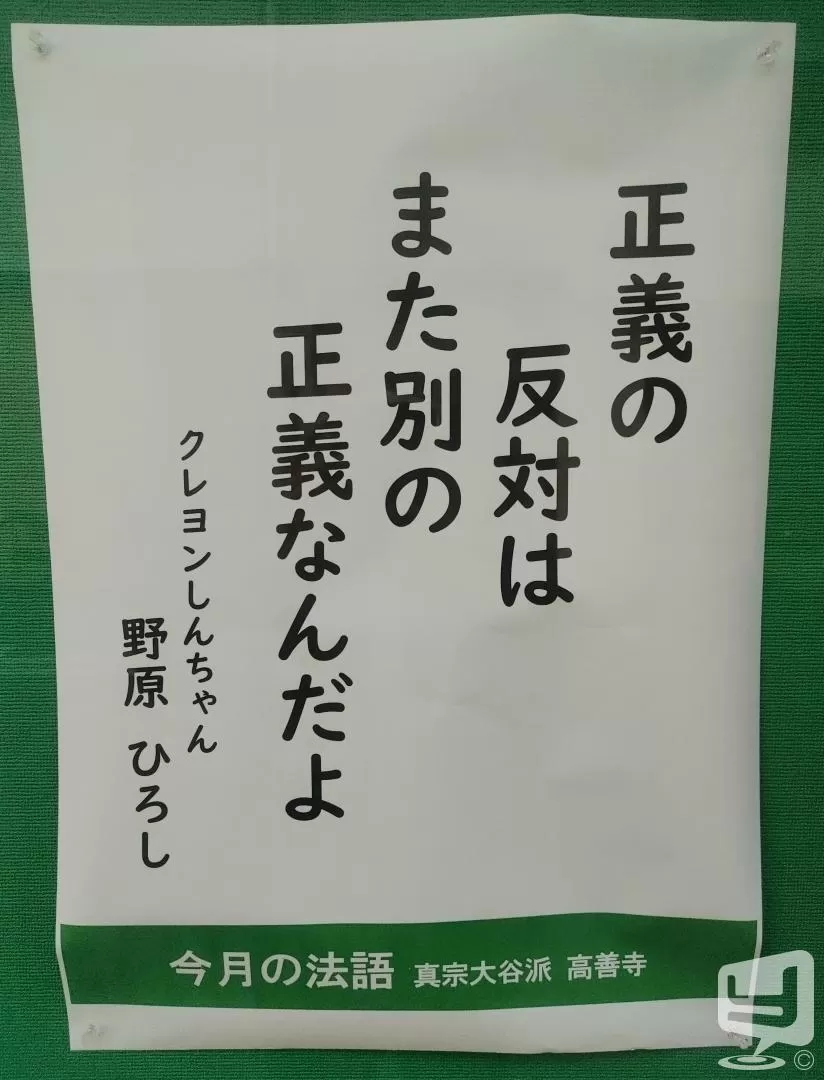 正義の
反対は
また別の
正義なんだよ
クレヨンしんちゃん
野原 ひろし
今月の法語 真宗大谷派 高善寺